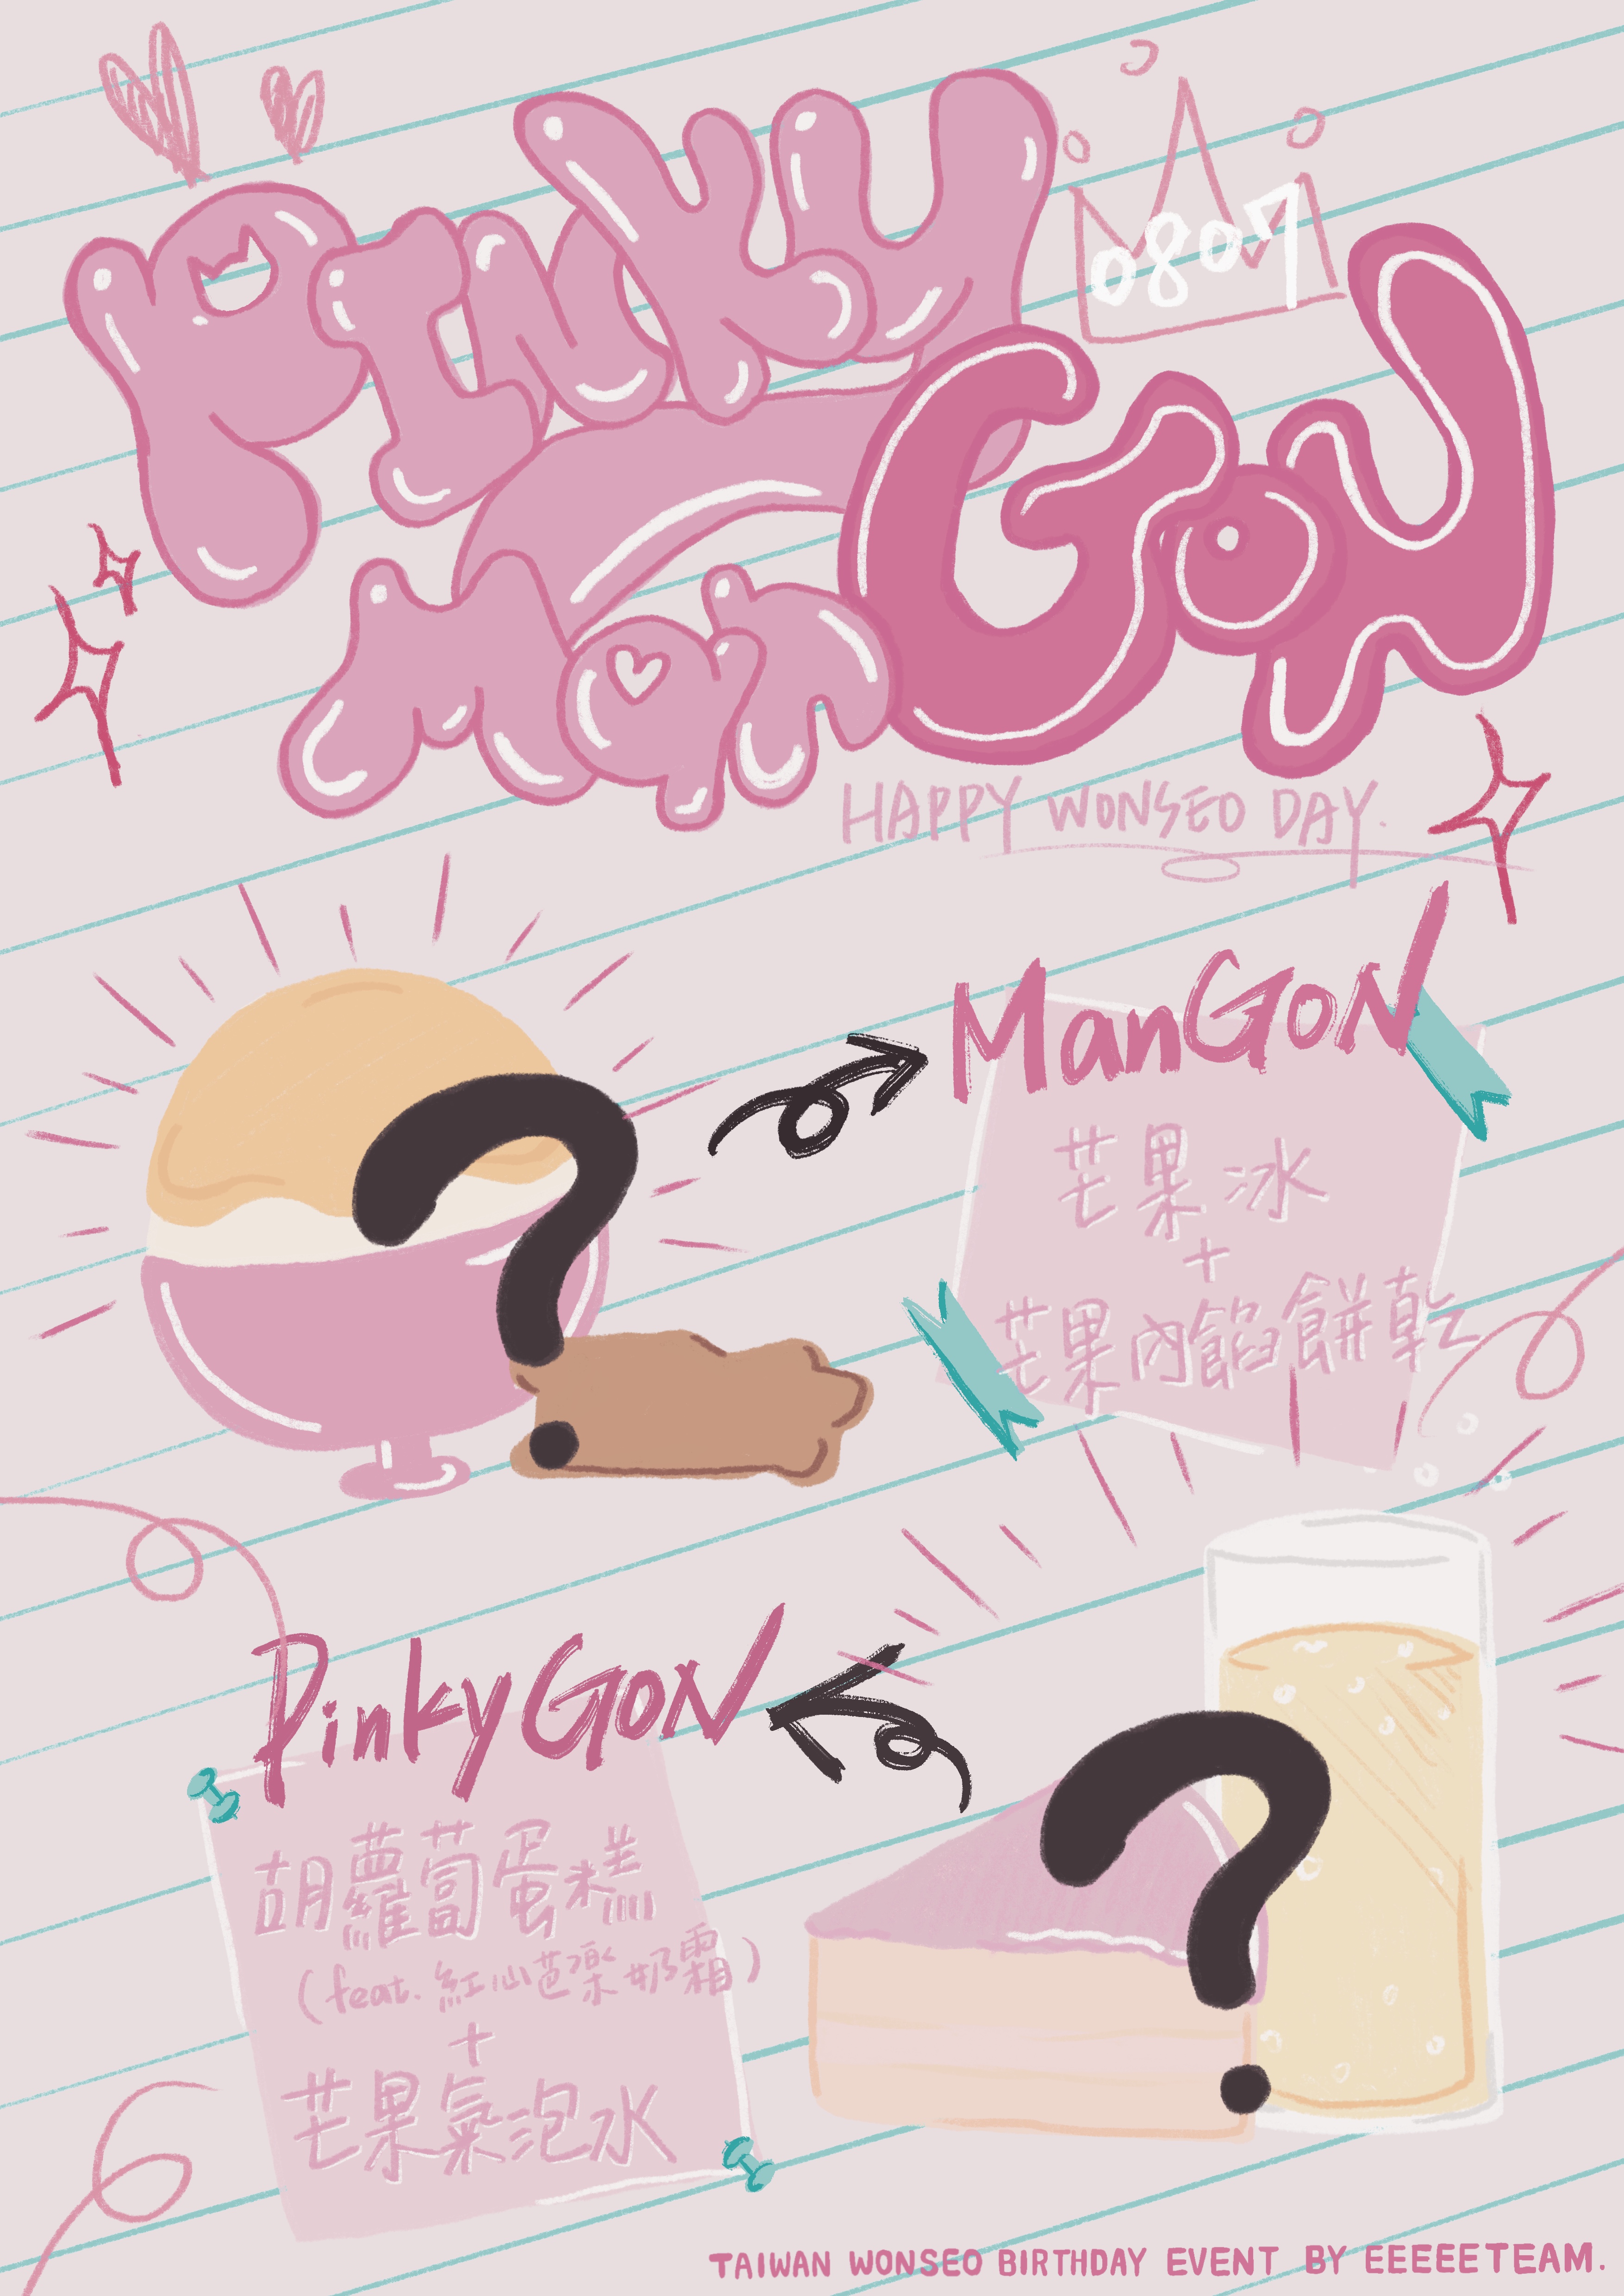 PINKY
0807
Man
GON
HAPPY WONSEO DAY.
ManGoN
芒果冰
+
芒果內餡餅乾
PinkyGoN
胡蘿蔔蛋糕
(feat. 紅心芭樂奶霜)
+
芒果氣泡水
TAIWAN WONSEO BIRTHDAY EVENT BY EEEEEETEAM.